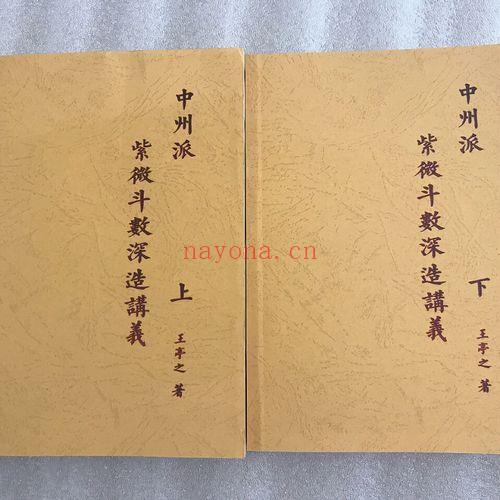 中州派
紫微斗數深造講義
上
王亭之 著
中州派
紫微斗數深造講義
下
王亭之 著
nayona.cn